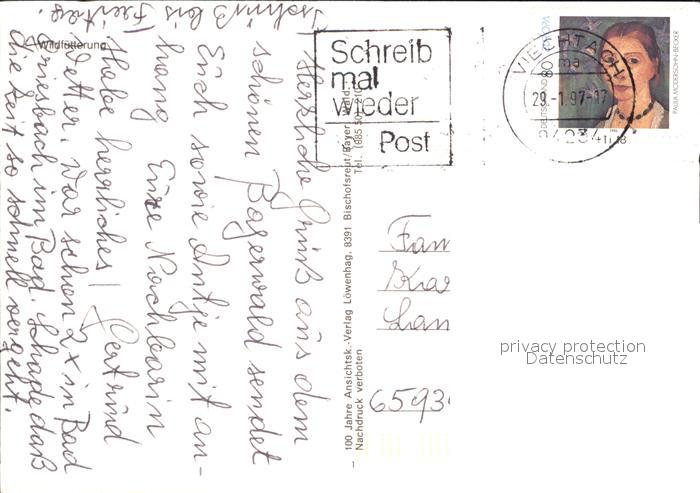 Wildfütterung
Herzliche Grüße aus dem
schönen Bayerwald sendet
Euch sowie Antje mit an-
hang Eure Nachbarin
Gertrund
Habe herrliches
Wetter. War schon 2x in Bad
Griesbach im Bad. Schade daß
die Zeit so schnell vergeht.
Tschüß bis Freitag.
100 Jahre Ansichtsk.-Verlag Löwenhag, 8391 Bischofsreut/Bayer. Wald
Nachdruck verboten
Schreib
mal
wieder
Post
VIECHTACH
29.-1.97-17
94234
80
EUROPA
PAULA MODERSOHN-BECKER
Fam
Kar
Lan
6593
privacy protection
Datenschutz